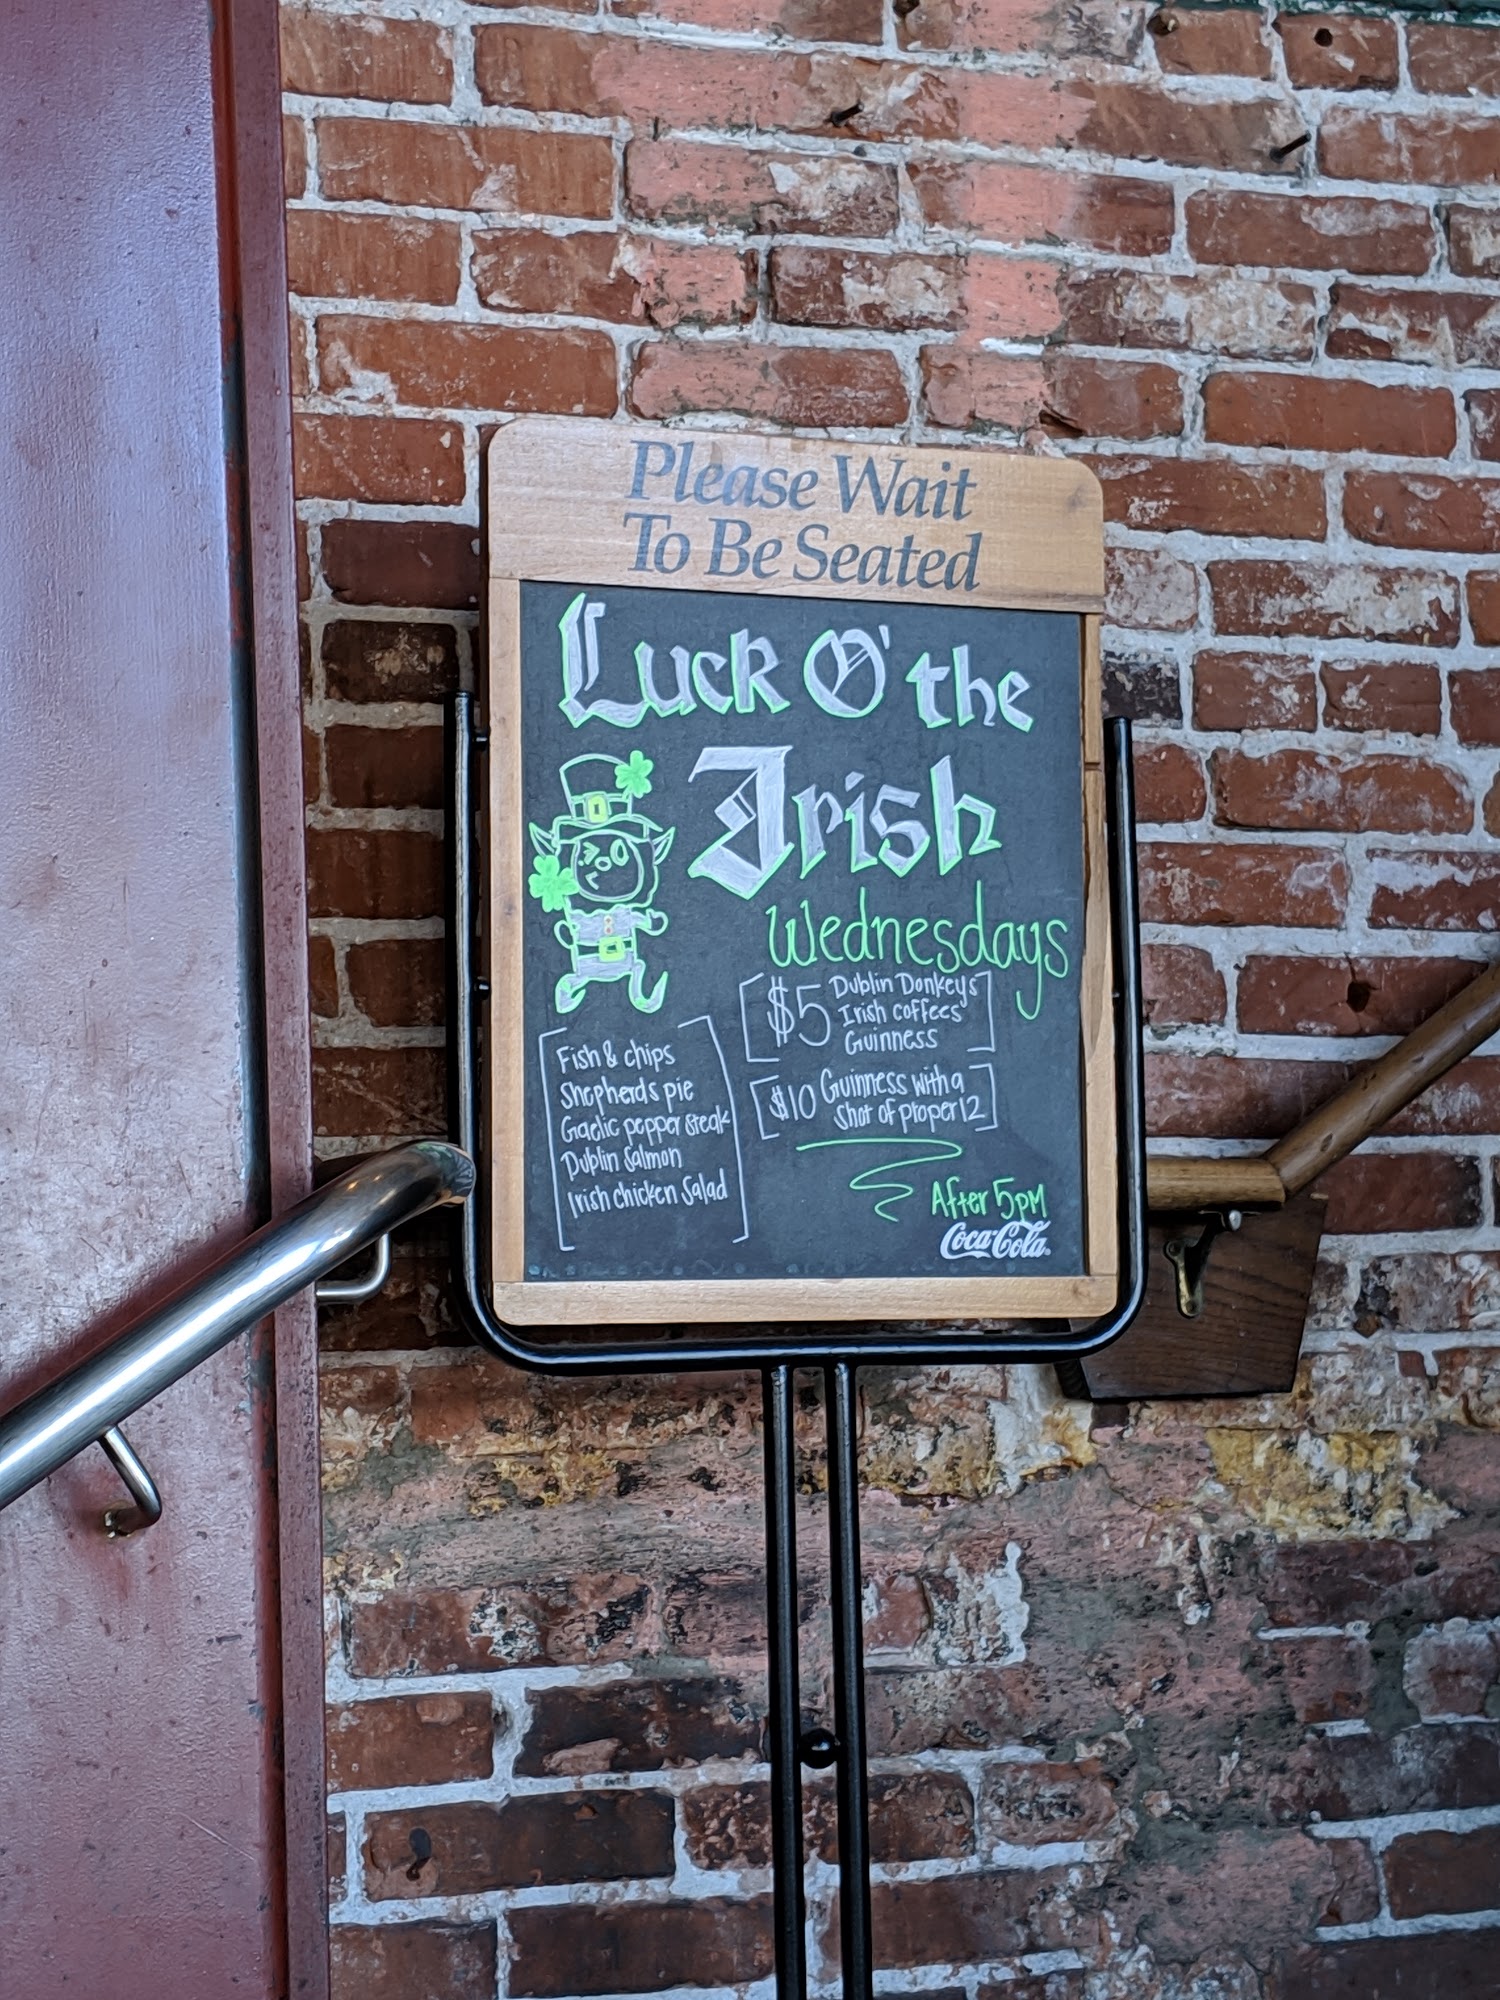 Please Wait
To Be Seated
Luck O' the
Irish
Wednesdays
$5 Dublin Donkeys
Irish coffees
Guinness
$10 Guinness with a
shot of proper 12
Fish & chips
Shepherds pie
Gaelic pepper steak
Dublin Salmon
Irish chicken Salad
After 5pm
Coca-Cola